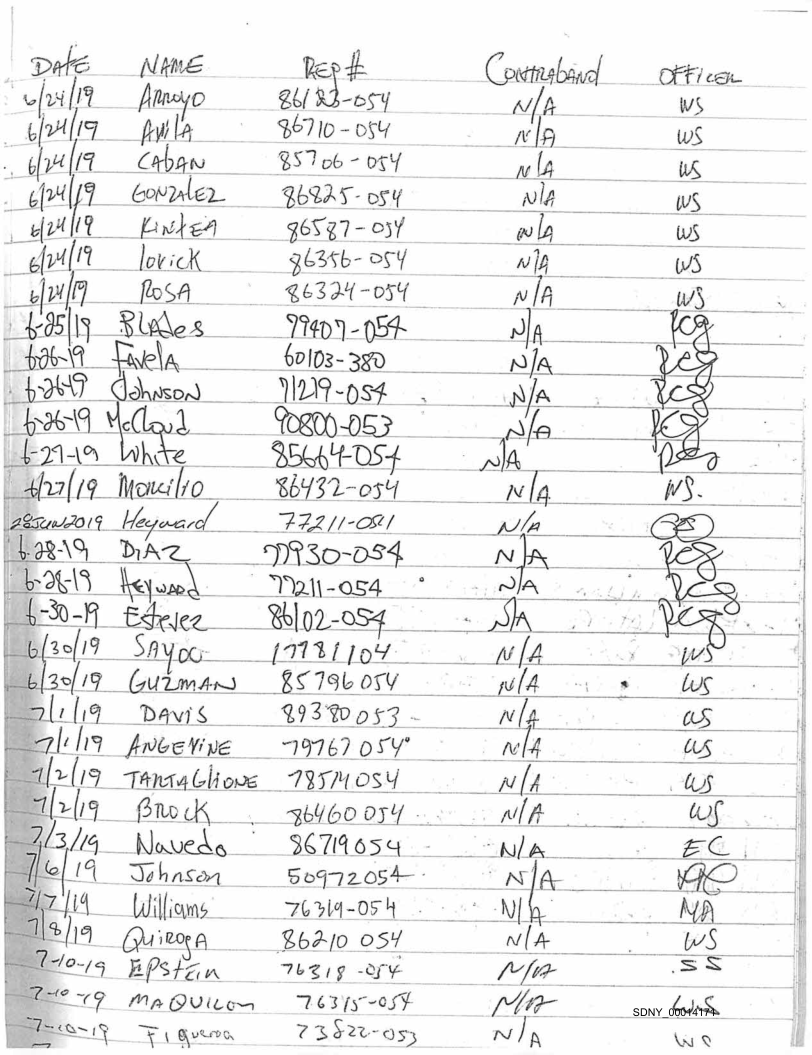 DATE NAME REP# CONTRABAND OFFICER
6/24/19 ARROYO 86183-054 N/A WS
6/24/19 AVILA 86710-054 N/A WS
6/24/19 CABAN 85706-054 N/A WS
6/24/19 GONZALEZ 86825-054 N/A WS
6/24/19 KINTEA 86587-054 N/A WS
6/24/19 lovick 86356-054 N/A WS
6/24/19 ROSA 86324-054 N/A WS
6-25/19 BLADes 79407-054 N/A
6-26-19 FAveLA 60103-380 N/A
6-26-19 JohNSON 71219-054 N/A
6-26-19 McCloud 90800-053 N/A
6-27-19 White 85664-054 N/A
6/27/19 Morcilio 86432-054 N/A WS.
28JUN2019 Heyward 77211-051 N/A
6-28-19 DiAZ 77930-054 N/A
6-28-19 HEYWARD 77211-054 N/A
6-30-19 Estevez 86102-054 N/A
6/30/19 SAYOO 17781104 N/A WS
6/30/19 GUZMAN 85796054 N/A WS
7/1/19 DAVIS 89380053 N/A WS
7/1/19 ANGEVINE 79767054 N/A WS
7/2/19 TARTAGLIONE 78514054 N/A WS
7/2/19 BROCK 86460054 N/A WS
7/3/19 Navedo 86719054 N/A EC
7/6/19 Johnson 50972054 N/A
7/7/19 Williams 76319-054 N/A MA
7/8/19 QUIROGA 86210 054 N/A WS
7-10-19 EPStein 76318-054 N/A SS
7-10-19 MAQUILON 76315-054 N/A WS
SDNY_00014174
7-10-19 Figueroa 73822-053 N/A WS